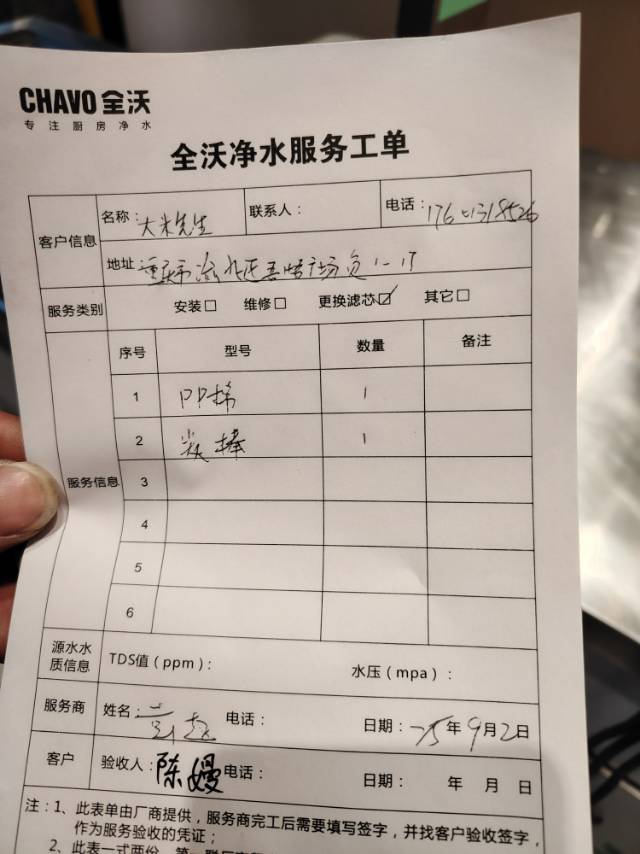 CHAVO 全沃
专注厨房净水
全沃净水服务工单
客户信息
名称：大米先生
联系人：
电话：
地址
服务类别
安装□ 维修□ 更换滤芯☑ 其它□
服务信息
序号 型号 数量 备注
1 PP棉 1
2 炭棒 1
3
4
5
6
源水水质信息
TDS值（ppm）： 水压（mpa）：
服务商 姓名： 电话： 日期：25年9月2日
客户 验收人：陈嫚 电话： 日期： 年 月 日
注：1、此表单由厂商提供，服务商完工后需要填写签字，并找客户验收签字，
作为服务验收的凭证；
2、此表一式两份，第一联